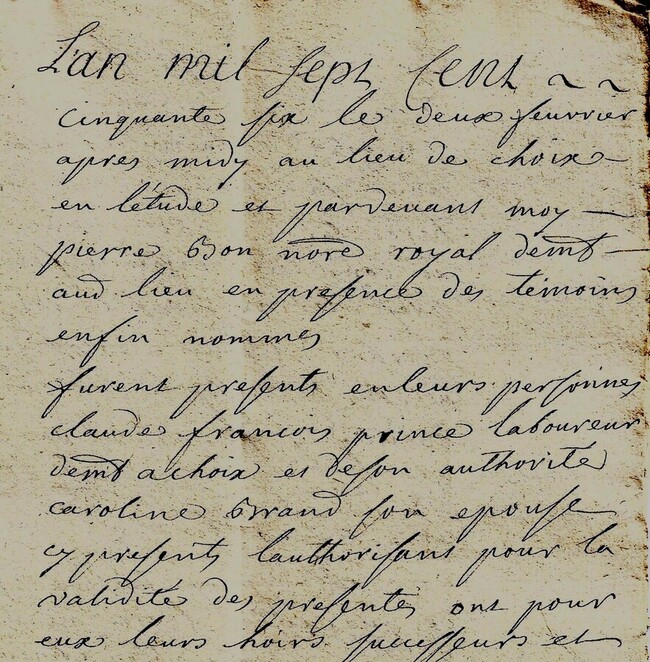 L'an mil sept Cent ~ ~
cinquante six le deux feuvrier
apres midy au lieu de choix
en l'étude et pardevant moy —
pierre Bon nore royal demt —
aud lieu en presence des témoins
enfin nommes
furent presents en leurs personnes
claude francois prince laboureur
demt a choix et de son authorite
caroline Brand son epouse
cy presents l'authorisant pour la
validité des presentes ont pour
eux leurs hoirs successeurs et